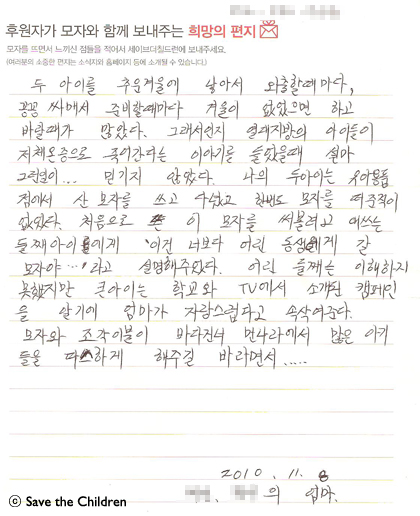 후원자가 모자와 함께 보내주는 희망의 편지
모자를 뜨면서 느끼신 점들을 적어서 세이브더칠드런에 보내주세요.
(여러분의 소중한 편지는 소식지와 홈페이지 등에 소개될 수 있습니다.)
두 아이를 추운겨울에 낳아서 외출할때마다,
꽁꽁 싸매서 준비할때마다 겨울이 없었으면 하고
바랄때가 많았다. 그래서인지 열대지방의 아이들이
저체온증으로 죽어간다는 이야기를 들었을때 설마
그런일이... 믿기지 않았다. 나의 두아이는 유아용품
점에서 산 모자를 쓰고 다녔고 한번도 모자를 떠준적이
없었다. 처음으로 뜬 이 모자를 써볼려고 애쓰는
둘째아이에게 '이건 너보다 어린 동생에게 갈
모자야...'라고 설명해주었다. 어린 둘째는 이해하지
못했지만 큰아이는 학교와 TV에서 소개된 캠페인
을 알기에 엄마가 자랑스럽다고 속삭여준다.
모자와 조각이불이 바다건너 먼나라에서 많은 아기
들을 따뜻하게 해주길 바라면서.....
2010. 11. 8
의 엄마.
ⓒ Save the Children